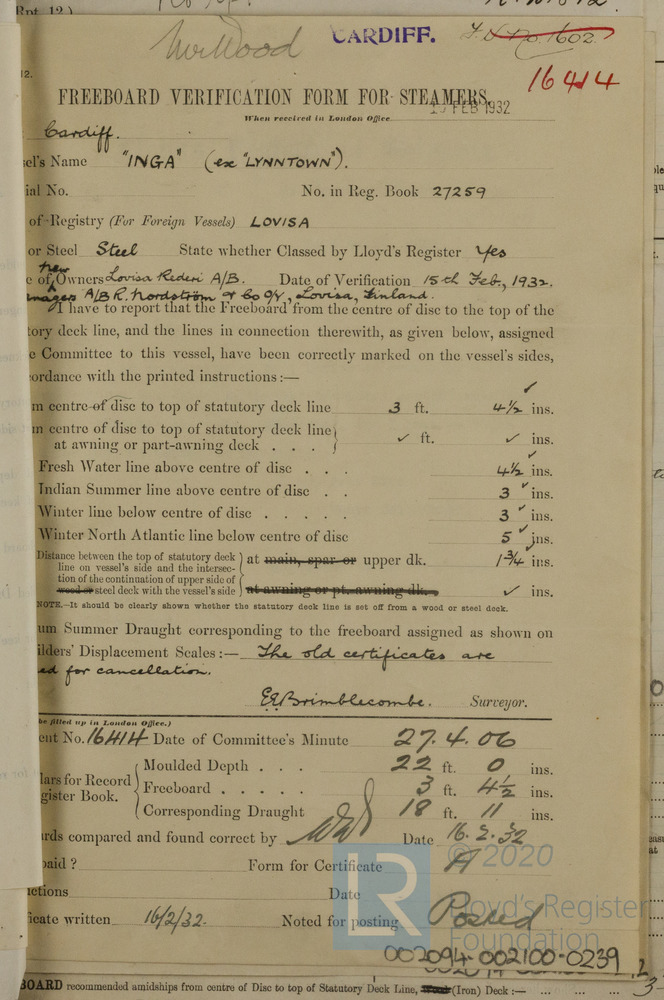 Rpt. 12.)
Mr Wood
CARDIFF.
F.V. No. 1602
16414
12.
FREEBOARD VERIFICATION FORM FOR STEAMERS.
FEB 1932
When received in London Office
Cardiff.
el's Name "INGA" (ex "LYNNTOWN").
ial No. No. in Reg. Book 27259
of Registry (For Foreign Vessels) LOVISA
or Steel Steel State whether Classed by Lloyd's Register Yes
new
e of Owners Lovisa Rederi A/B. Date of Verification 15th Feb., 1932.
nagers A/B R. Nordström & Co O/Y, Lovisa, Finland.
I have to report that the Freeboard from the centre of disc to the top of the
tory deck line, and the lines in connection therewith, as given below, assigned
e Committee to this vessel, have been correctly marked on the vessel's sides,
ordance with the printed instructions:—
m centre of disc to top of statutory deck line 3 ft. 4½ ins.
m centre of disc to top of statutory deck line
at awning or part-awning deck . . . ✓ ft. ✓ ins.
Fresh Water line above centre of disc . . . 4½ ins.
Indian Summer line above centre of disc . . 3 ins.
Winter line below centre of disc . . . . . 3 ins.
Winter North Atlantic line below centre of disc 5 ins.
Distance between the top of statutory deck
line on vessel's side and the intersec-
tion of the continuation of upper side of
wood or steel deck with the vessel's side
at main, spar or upper dk. 1¾ ins.
at awning or pt. awning dk. ✓ ins.
NOTE.—It should be clearly shown whether the statutory deck line is set off from a wood or steel deck.
um Summer Draught corresponding to the freeboard assigned as shown on
ilders' Displacement Scales:— The old certificates are
ed for cancellation.
E.E. Brimblecombe. Surveyor.
be filled up in London Office.)
ent No. 16414 Date of Committee's Minute 27.4.06
lars for Record
gister Book.
Moulded Depth . . . 22 ft. 0 ins.
Freeboard . . . . . 3 ft. 4½ ins.
Corresponding Draught 18 ft. 11 ins.
rds compared and found correct by Date 16.2.32
paid ? Form for Certificate A
uctions Date
icate written 16/2/32. Noted for posting Posted
© 2020
LR
Lloyd's Register
Foundation
002094-002100-0239
BOARD recommended amidships from centre of Disc to top of Statutory Deck Line, Wood (Iron) Deck :—